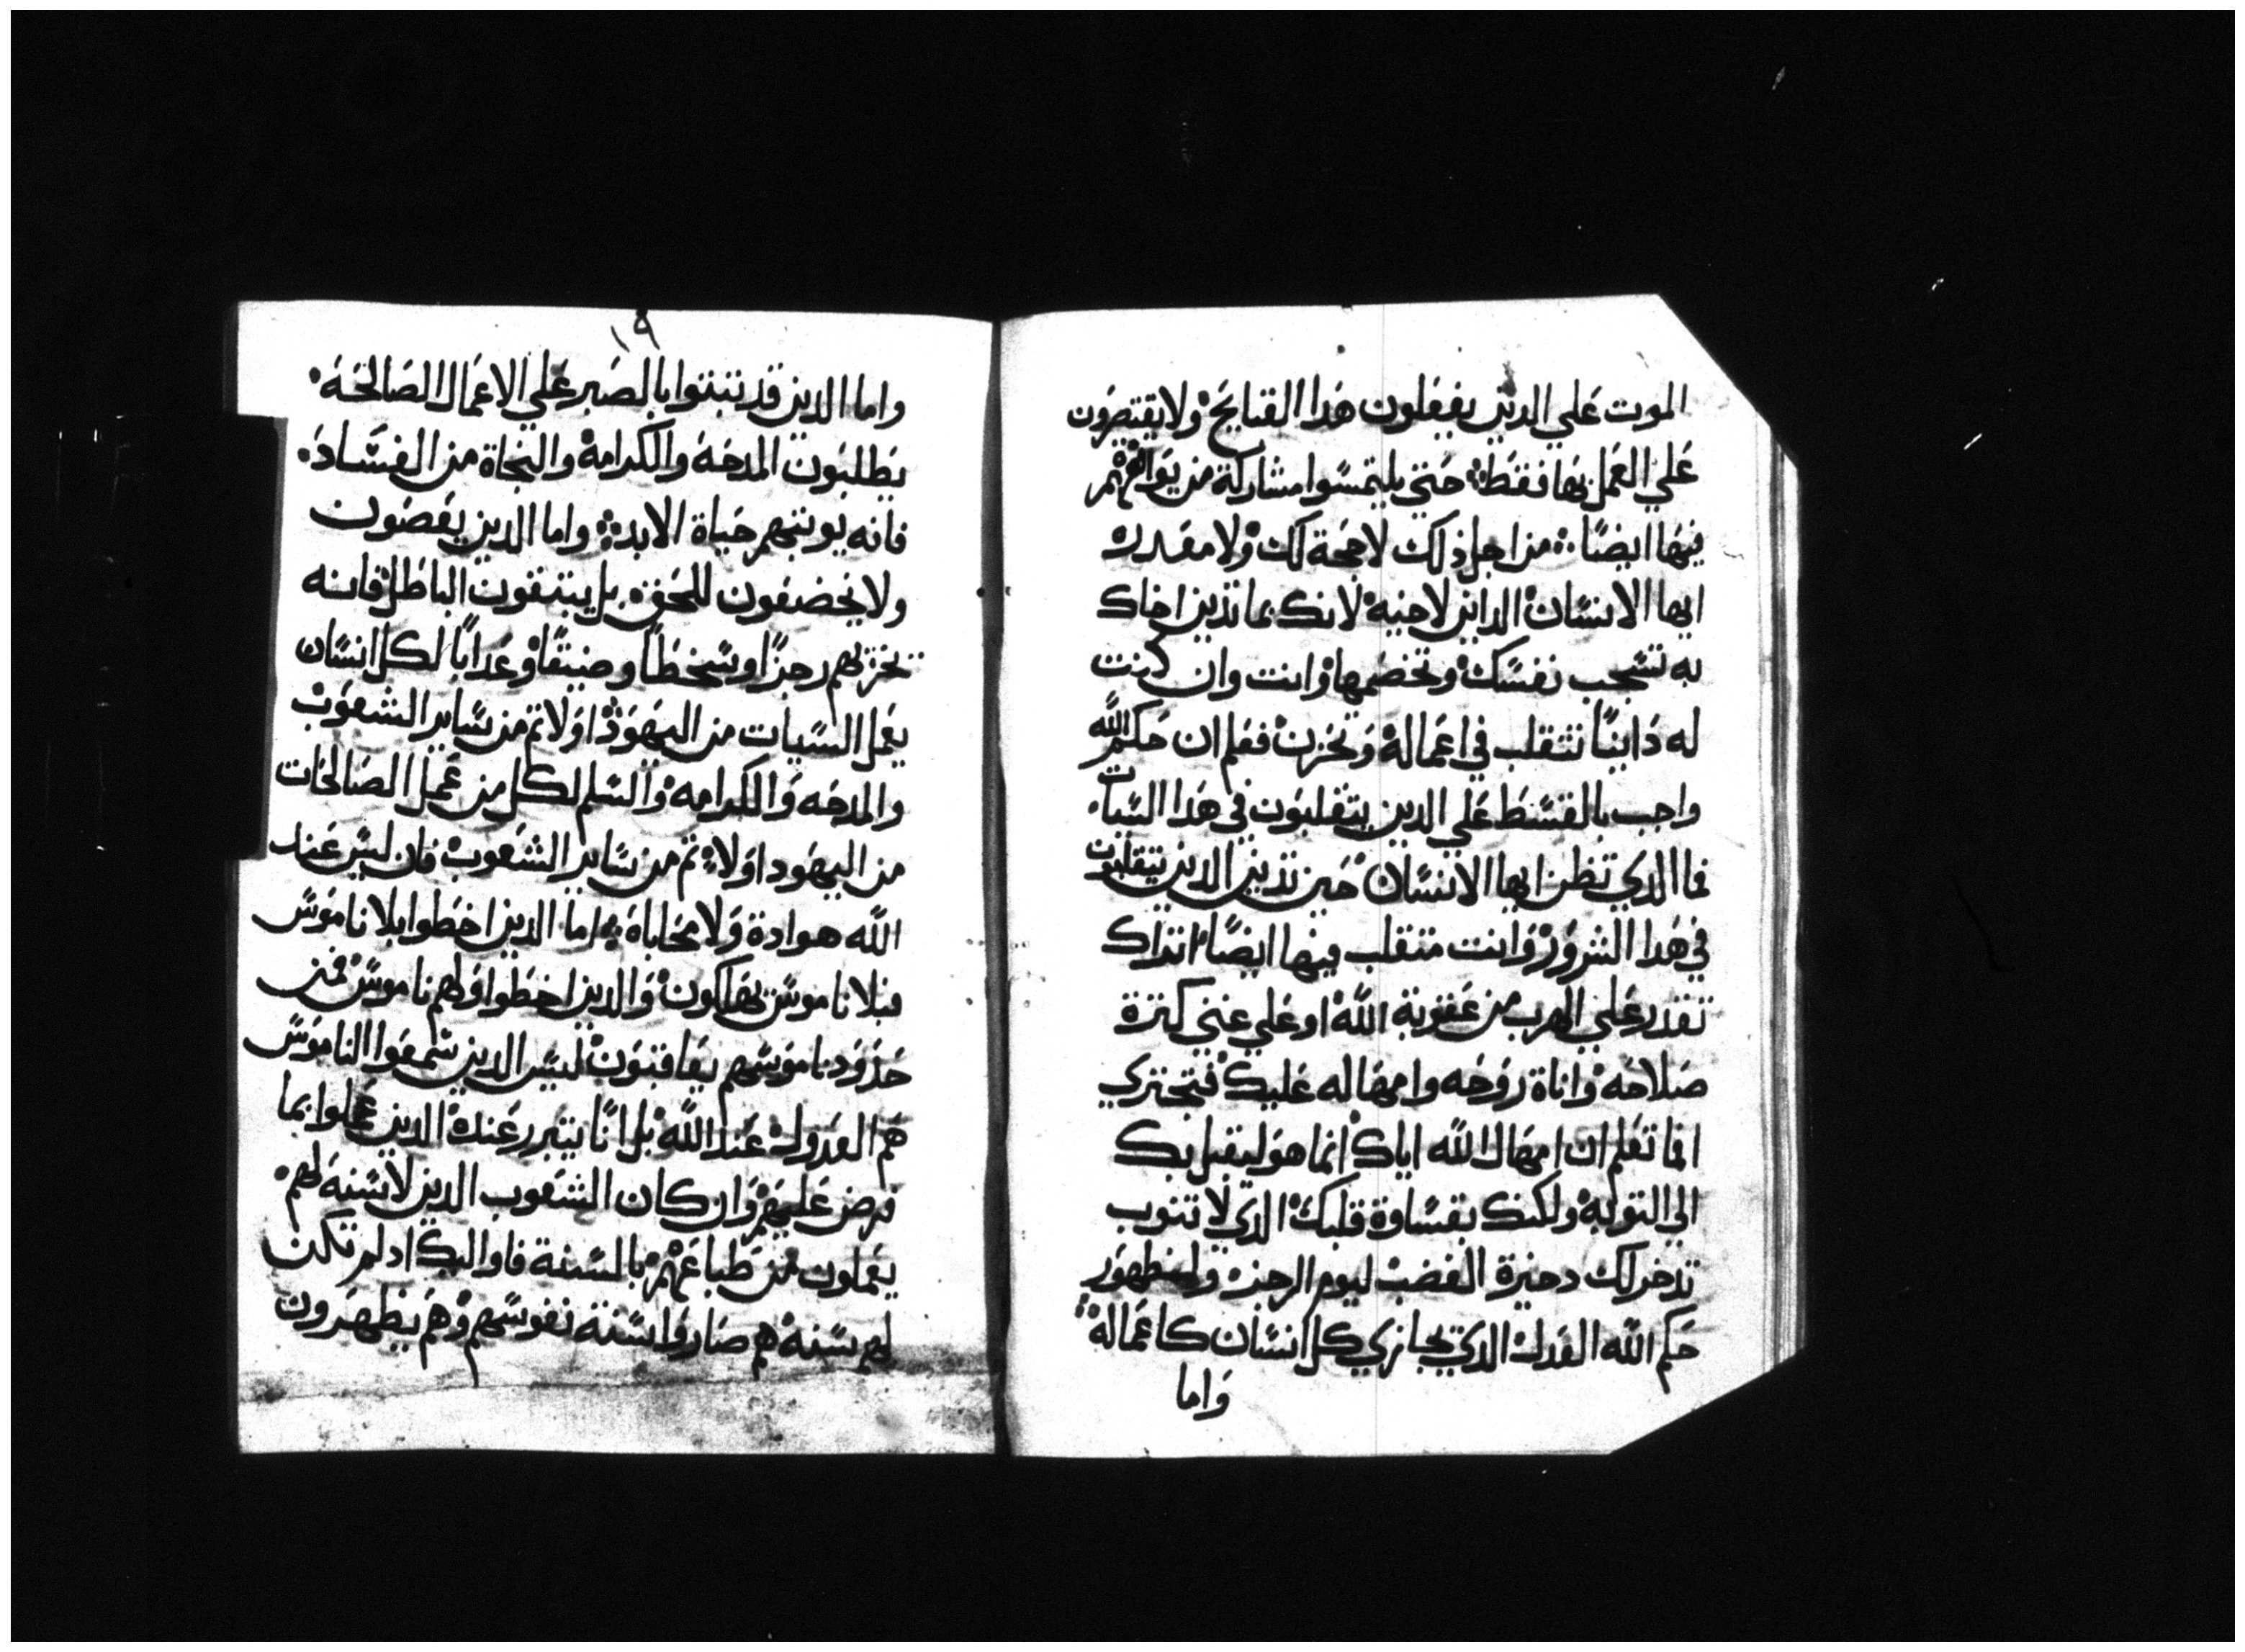 الموت علي الدين يفعلون هدا القبايح ولا يقتصرون
علي العمل بها فقط حتي يلتمسوا مشاركة من يوافقهم
فيها ايضًا من اجل ذلك لا حجة لك ولا معدره
ايها الانسان الداين لاخيه لانك بما تدين اخاك
به تشجب نفسك وتخصمها وانت وان كنت
له داينًا تتقلب في اعماله وتحزن فنعلم ان حكم الله
واجب بالقسط علي الدين يتقلبون في هدا السيات
فما الدي تظن ايها الانسان حين تدين الدين يتقلبون
في هدا الشرور وانت متقلب فيها ايضًا اتراك
تقدر علي الهرب من عقوبة الله او علي غني كترة
صلاحه واناة روحه وامهاله عليك فتجتري
افما تعلم ان امهال الله اياك انما هو ليقبل بك
الي التوبه ولكنك بقساوة قلبك الدي لا تتوب
تدخر لك دخيرة الغضب ليوم الرجز ولظهور
حكم الله العدل الدي يجازي كل انسان كاعماله
واما
١٩
واما الدين قد تبتوا بالصبر علي الاعمال الصالحة
يطلبون المدحه والكرامة والنجاة من الفساد
فانه يوتيهم حياة الابد واما الدين يعصون
ولا يخضعون للحق بل يتبعون الباطل فانه
يجزيهم رجزًا وسخطًا وضيقًا وعدابًا لكل انسان
يعمل السيات من اليهود اولا تم من ساير الشعوب
والمدحه والكرامه والسلم لكل من عمل الصالحات
من اليهود اولا تم من ساير الشعوب فان ليس عند
الله هوادة ولا محاباة اما الدين اخطوا بلا ناموس
فبلا ناموس يهلكون والدين اخطوا ولهم ناموس فمن
حدود ناموسهم يعاقبون ليس الدين سمعوا الناموس
هم العدول عند الله بل انما يتبرر عنده الدين عملوا بما
فرض عليهم وان كان الشعوب الدين لا سنة لهم
يعملون من طباعهم بالسنة فاوليك اد لم تكن
لهم سنة هم صاروا سنة نفوسهم وهم يظهرون